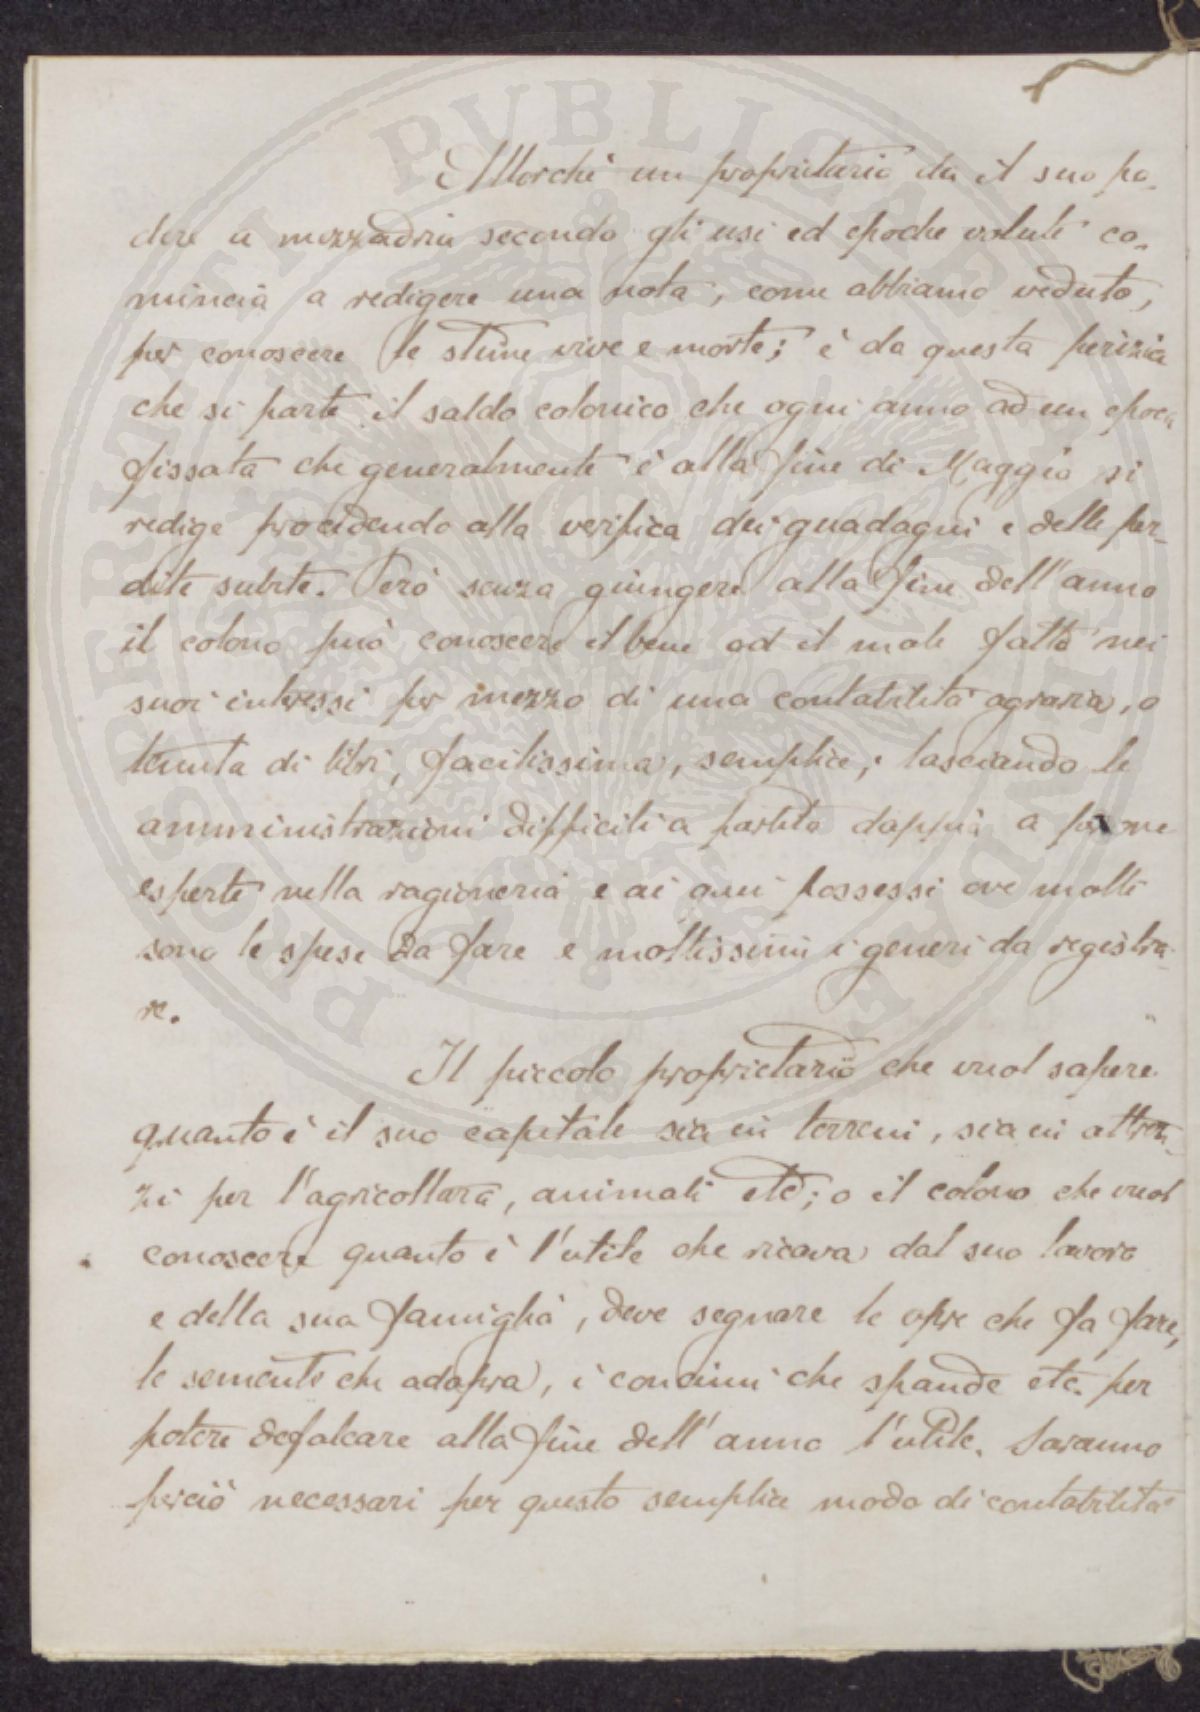 Allorchè un proprietario da il suo po-
dere a mezzadria secondo gli usi ed epoche volute co-
mincia a redigere una nota, come abbiamo veduto,
per conoscere le stime vive e morte; è da questa perizia
che si parte il saldo colonico che ogni anno ad un epoca
fissata che generalmente è alla fine di Maggio si
redige procedendo alla verifica dei guadagni e delle per-
dite subite. Però senza giungere alla fine dell'anno
il colono può conoscere il bene od il male fatto nei
suoi interessi per mezzo di una contabilità agraria, o
tenuta di libri, facilissima, semplice; lasciando le
amministrazioni difficili a partita doppia a persone
esperte nella ragioneria e ai possessi ove molte
sono le spese da fare e moltissimi i generi da registra-
re.
Il piccolo proprietario che vuol sapere
quanto è il suo capitale sia in terreni, sia in attrez-
zi per l'agricoltura, animali etc; o il colono che vuol
conoscere quanto è l'utile che ricava dal suo lavoro
e della sua famiglia, deve segnare le opre che fa fare,
le semente che adopra, i concimi che spande etc. per
potere defalcare alla fine dell'anno l'utile. Saranno
perciò necessari per questo semplice modo di contabilità
PROSPERITATI PUBLICAE AUGENDAE